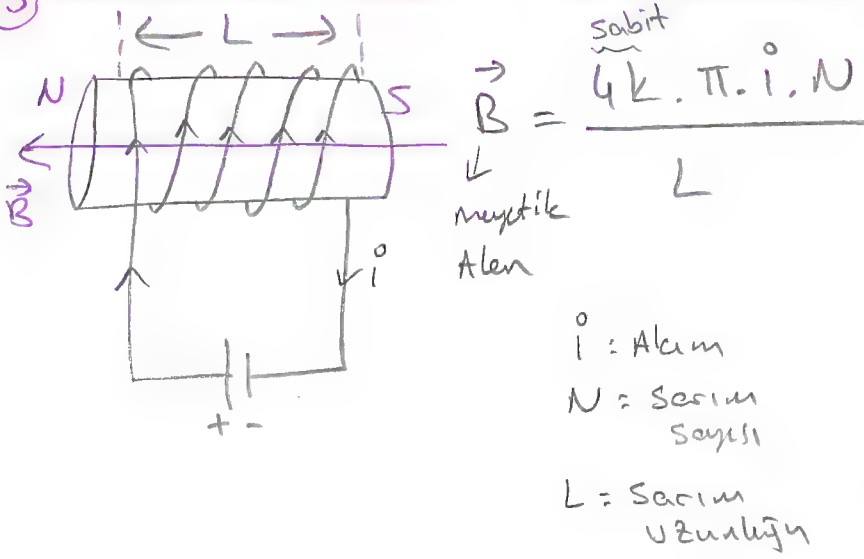 3
L
N
S
B
i
+ -
sabit
B = 4k . π . i . N
L
manyetik
Alan
i : Akım
N : Sarım
Sayısı
L : Sarım
Uzunluğu